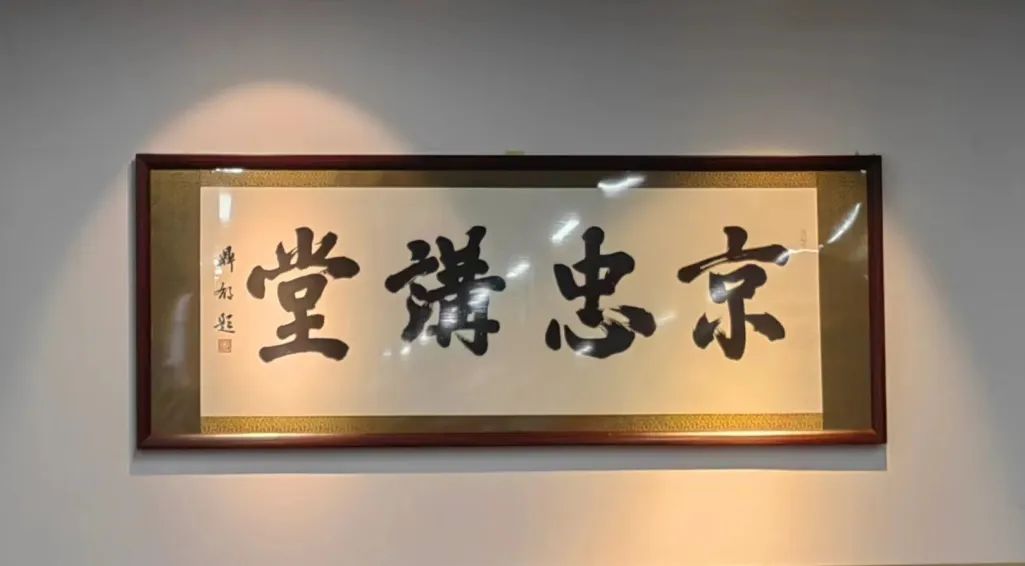 京忠講堂
鼎銘題